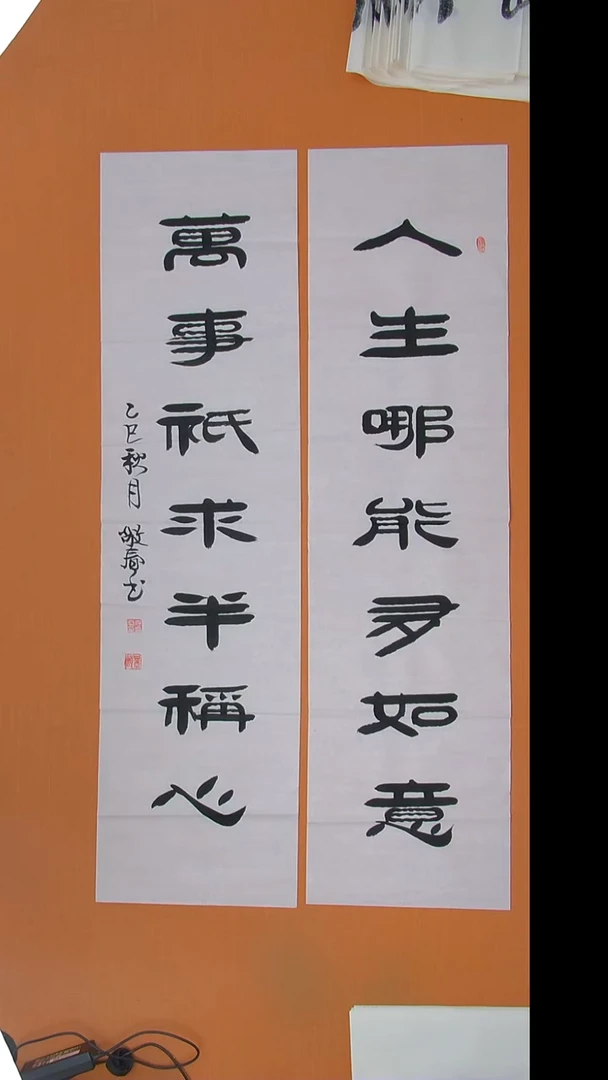 人生哪能多如意
萬事祇求半稱心
乙巳秋月